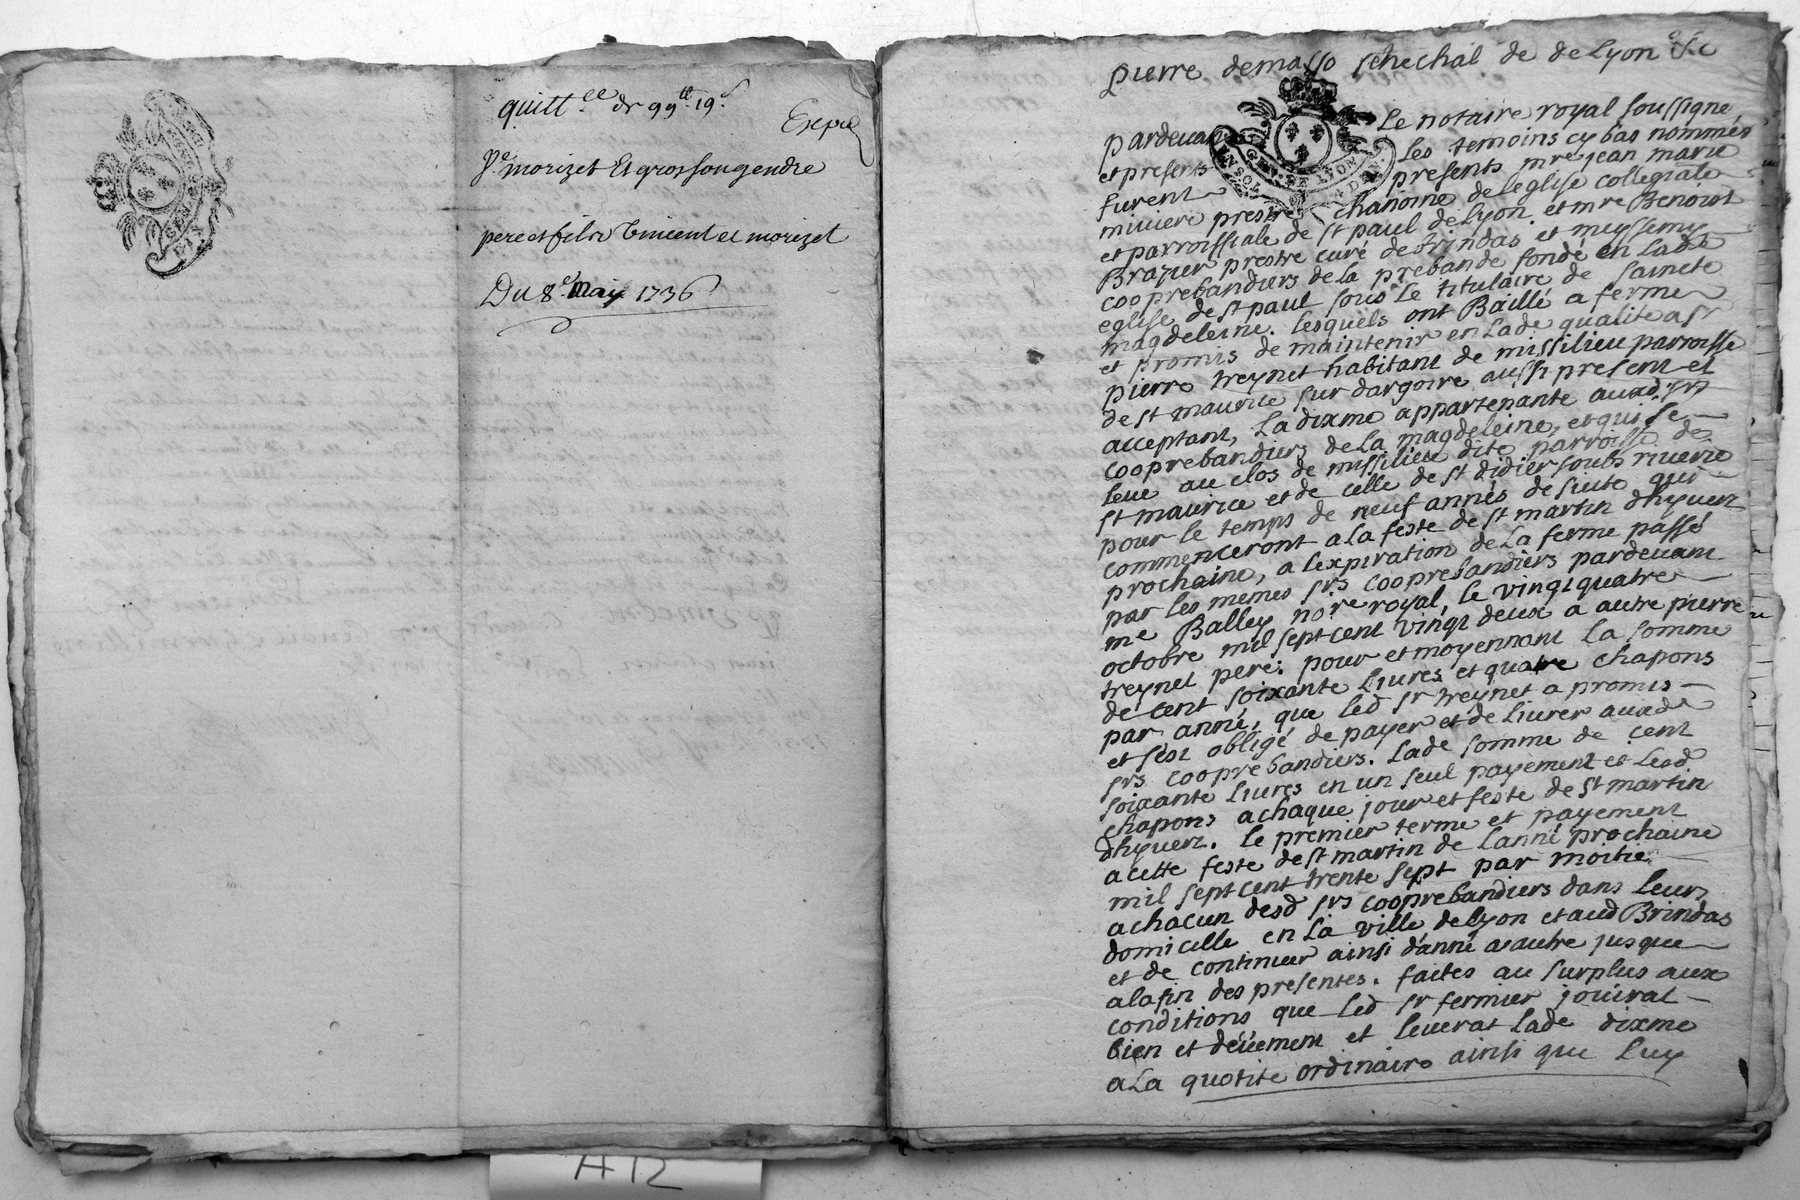 quitt.ce de 99tt 19s
Expé
Pe. morizet Et gros son gendre
pere et fils Vincent et morizet
Du 8e. May 1736
pierre demasso senechal de de Lyon &c
Pardevant Le notaire royal soussigné
et presents Les temoins cy bas nommés
furent presents mre jean marie
miviere prestre chanoine de Leglise collegiale
et parroissiale de st paul de Lyon, et mre Benoist
Brazier prestre curé de Brindas et meyssemy
cooprebandiers de La prebande fondé en Lade
eglise de st paul sous Le titulaire de saincte
magdeleine. Lesquels ont Baillé a ferme
et promis de maintenir en Lade qualite a sr
pierre treynet habitant de missilieu parroisse
de st maurice sur dargoire aussi present et
acceptant, La dixme appartenante auxd. srs
cooprebandiers de La magdeleine, et qui se
Leve au clos de missilieu dite parroisse de
st maurice et de celle de st didier soubs riverie
pour le temps de neuf annés de suite qui
commenceront a la feste de st martin dhyvert
prochaine, a Lexpiration de La ferme passé
par les memes srs cooprebandiers pardevant
me Balley nore royal, le vingt quatre
octobre mil sept cent vingt deux a autre pierre
treynet pere: pour et moyennant La somme
de cent soixante Livres et quatre chapons
par anné, que led sr treynet a promis
et s'est obligé de payer et de Livrer auxd
srs cooprebandiers. Lade somme de cent
soixante Livres en un seul payement et Lesd
chapons a chaque jour et feste de st martin
dhyvert. Le premier terme et payement
a cette feste de st martin de Lanné prochaine
mil sept cent trente sept par moitie
a chacun desd srs cooprebandiers dans Leurs
domicille en La ville de Lyon et aud Brindas
et de continuer ainsi d'anné a autre jusque
a la fin des presentes. faites au surplus aux
conditions que Led sr fermier jouirat
bien et déuement et Leverat Lade dixme
a La quotite ordinaire ainsi que Luy
GEN. DE LYON
A12